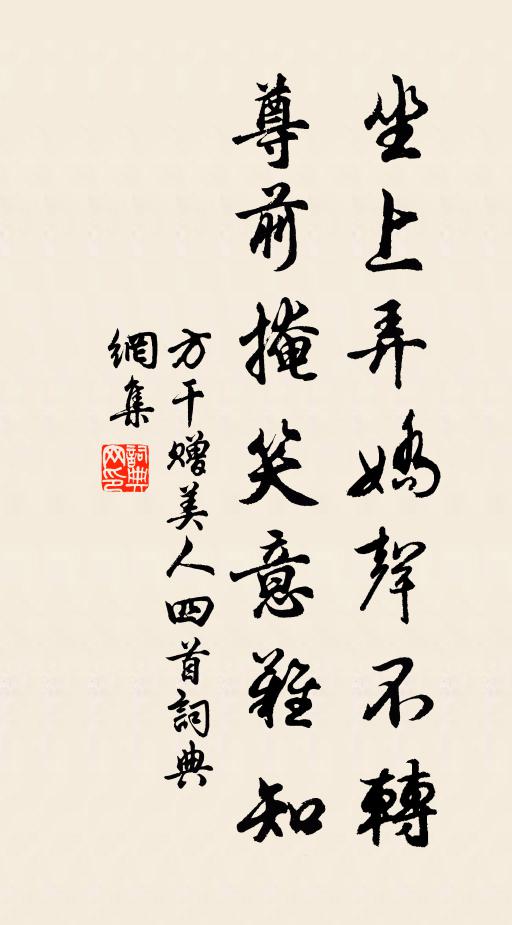 坐上弄嬌聲不轉
尊前掩笑意難知
方干贈美人四首詞典
網集
詞典
网印